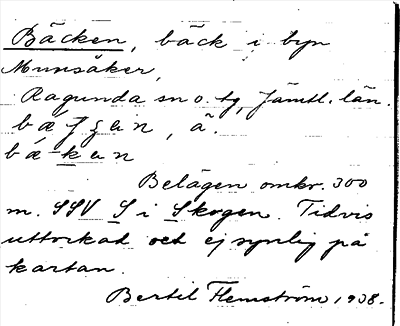 Bäcken, bäck i byn
Munsåker,
Ragunda sn o. tg, Jämtl. län.
, å.
bǽ-kan
Belägen omkr. 300
m. SSV S i Skogen. Tidvis
uttorkad och ej synlig på
kartan.
Bertil Flemström 1938.